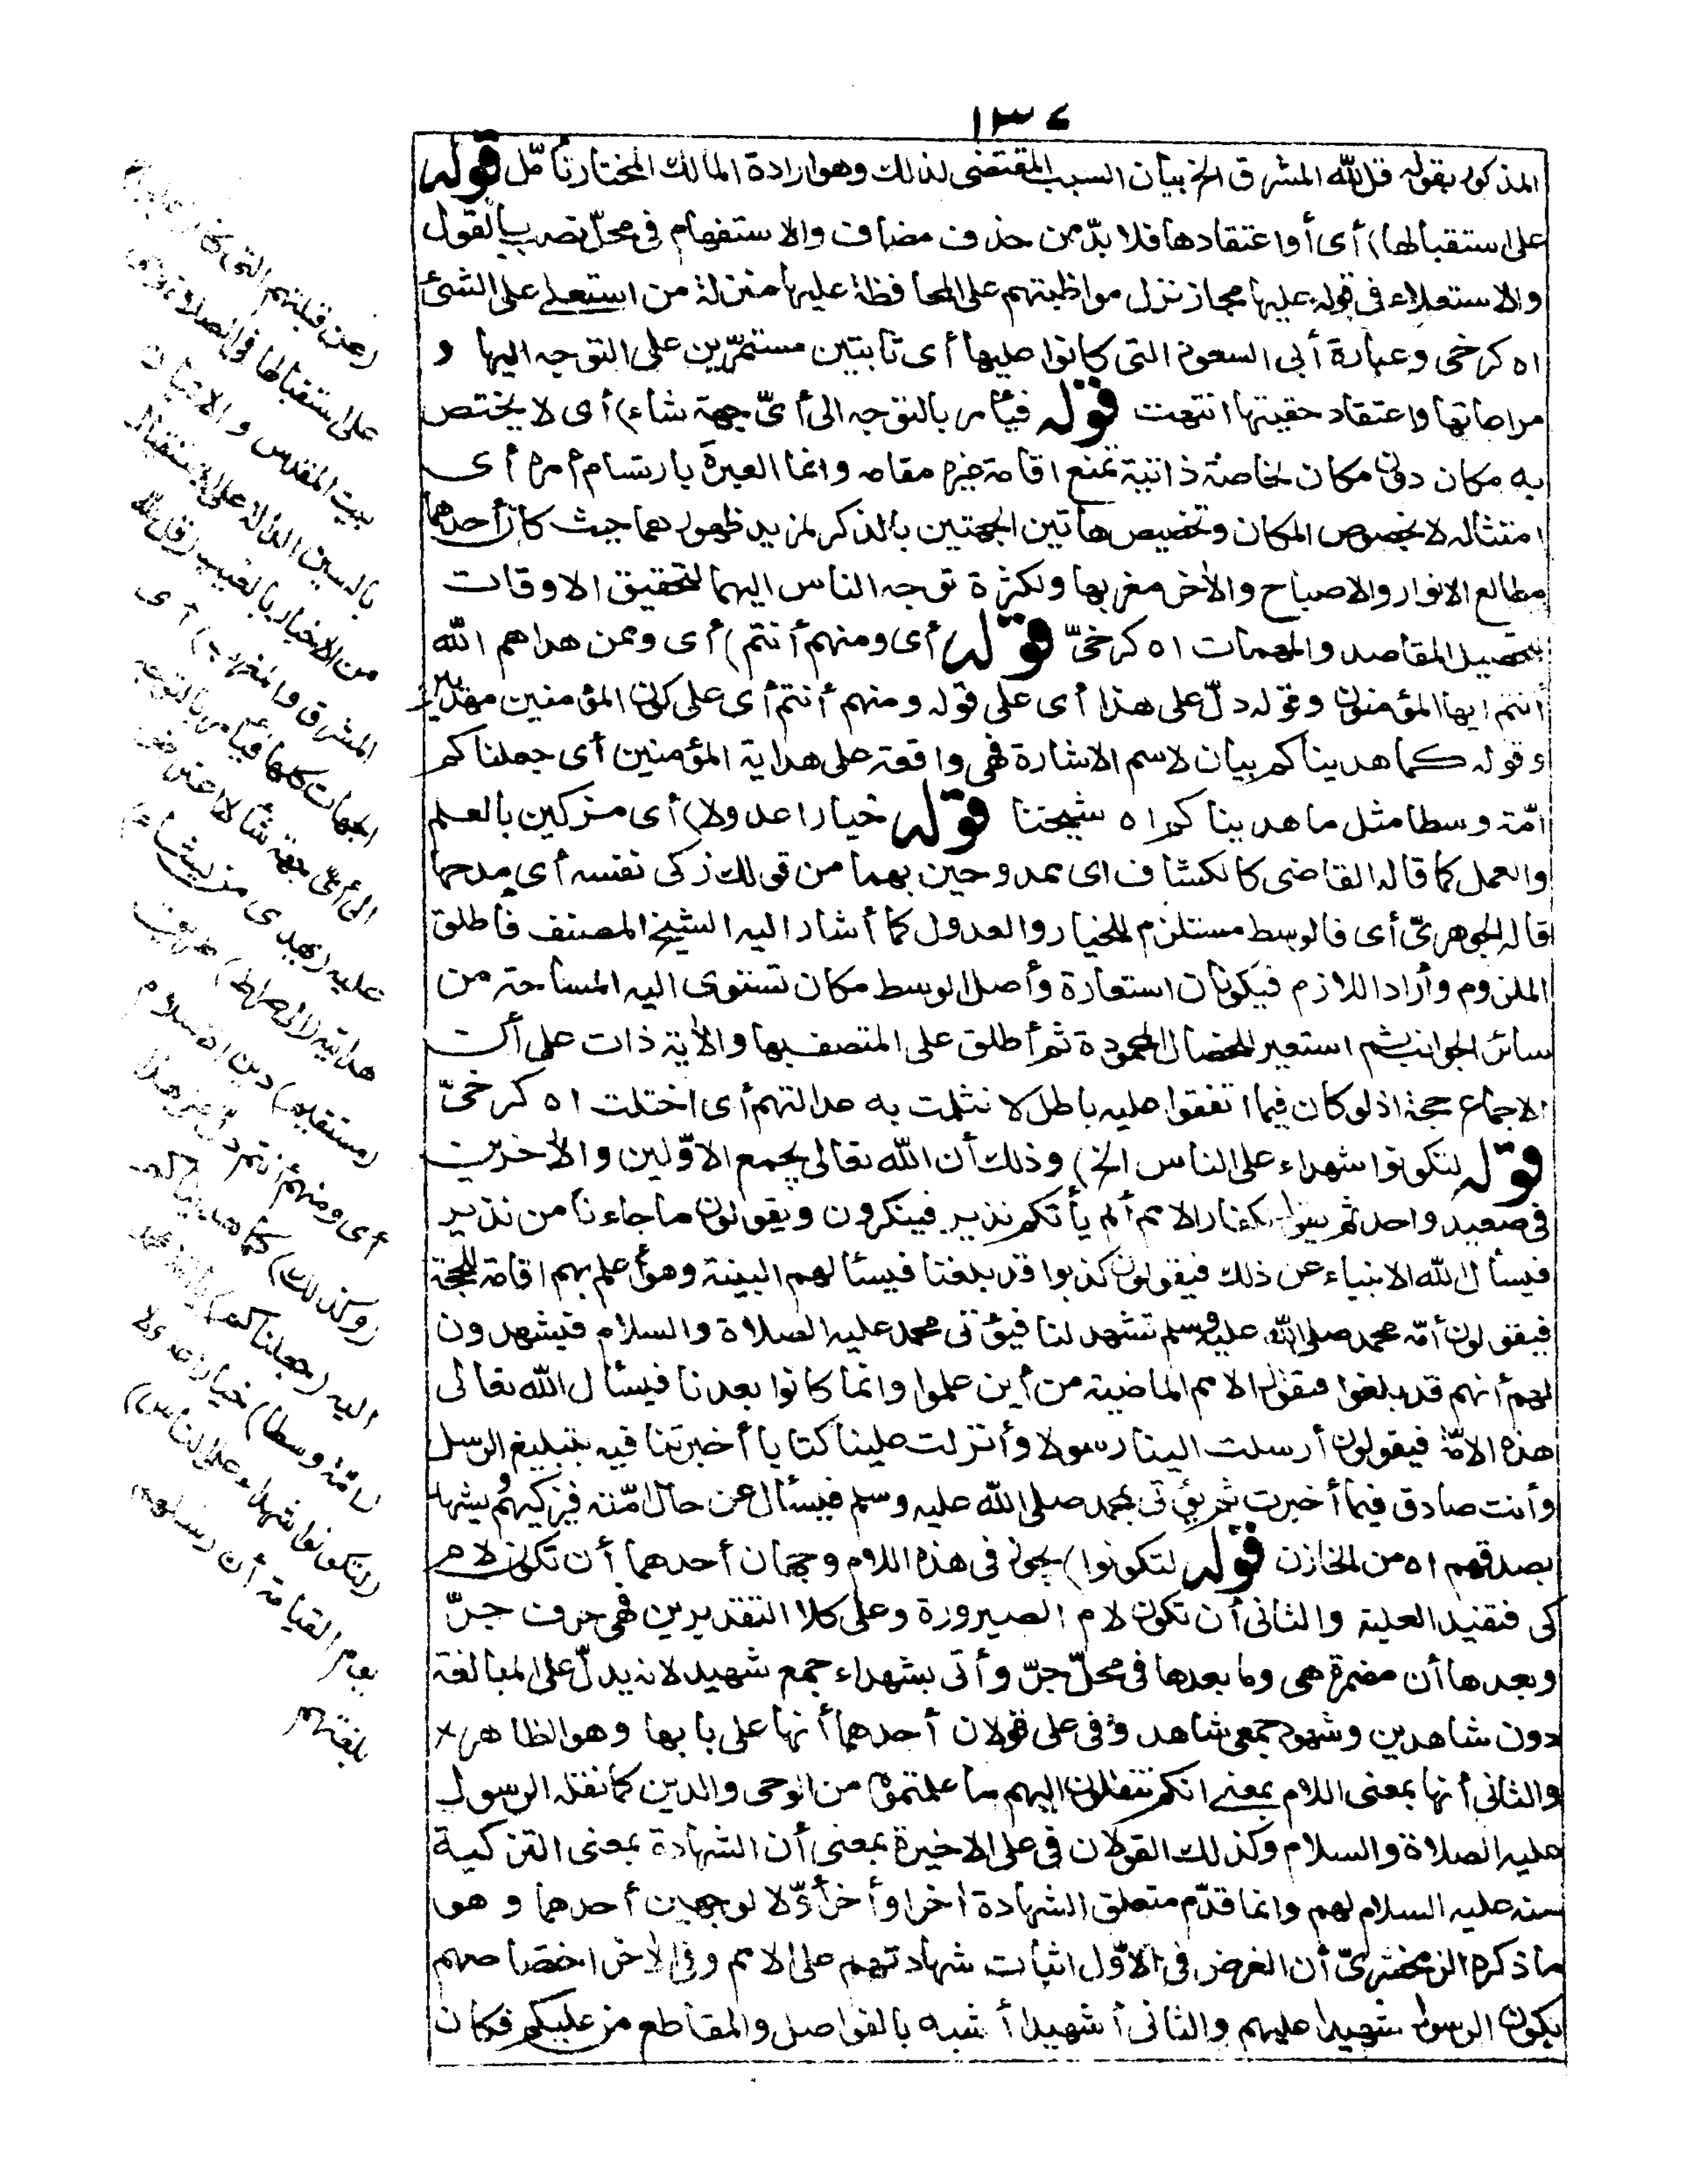 ١٣٤
المذكور بقوله قل لله المشرق الخ بيان السبب المقتضى لذلك وهو ارادة المالك المختار تأمّل قوله
على استقبالها) أى أو اعتقادها فلا بدّ من حذف مضاف والاستفهام فى محلّ نصب بالقول
والاستعلاء فى قوله عليها مجاز نزل مواظبتهم على المحافظة عليها منزلة من استعلى على الشئ
اه كرخى وعبارة أبى السعود التى كانوا عليها أى ثابتين مستمرّين على التوجه اليها و
مراعاتها واعتقاد حقيتها انتهت قوله فيأمر بالتوجه الى أىّ جهة شاء) أى لا يختص
به مكان دون مكان لخاصة ذاتية تمنع اقامة غيره مقامه وانما العبرة بارتسام أمره أى
امتثاله لا بخصوص المكان وتخصيص هاتين الجهتين بالذكر لمزيد ظهورهما حيث كان أحدهما
مطالع الانوار والاصباح والأخر مغربها ولكثرة توجه الناس اليهما لتحقيق الاوقات
لتحصيل المقاصد والمهمات اه كرخىّ قوله أى ومنهم أنتم) أى وممن هداهم الله
أنتم ايها المؤمنون وقوله دلّ على هذا أى على قوله ومنهم أنتم أى على كون المؤمنين مهديين
وقوله كما هديناكم بيان لاسم الاشارة فهى واقعة على هداية المؤمنين أى جعلناكم
امّة وسطا مثل ما هديناكم اه شيخنا قوله خيارا عدولا) أى مزكين بالعلم
والعمل كما قاله القاضى كالكشاف اى ممدوحين بهما من قولك زكى نفسه أى مدحها
قاله الجوهرىّ أى فالوسط مستلزم للخيار والعدول كما أشار اليه الشيخ المصنف فأطلق
الملزوم وأراد اللازم فيكونان استعارة وأصل الوسط مكان تستوى اليه المساحة من
سائر الجوانب ثم استعير للخصال المحمودة ثم أطلق على المتصف بها والأية ذات على أن
الاجماع حجة اذ لو كان فيما اتفقوا عليه باطل لانثلمت به عدالتهم أى اختلت اه كرخىّ
قوله لتكونوا شهداء على الناس الخ) وذلك أن الله تعالى يجمع الاوّلين والأخرين
فى صعيد واحد ثم يقول لكفار الامم ألم يأتكم نذير فينكرون ويقولون ما جاءنا من نذير
فيسأل الله الانبياء عن ذلك فيقولون كذبوا قد بلغنا فيسألهم البينة وهو أعلم بهم اقامة للحجة
فيقولون أمّة محمد صلى الله عليه وسلم تشهد لنا فيؤتى محمد عليه الصلاة والسلام فيشهدون
لهم أنهم قد بلغوا فتقول الامم الماضية من أين علموا وانما كانوا بعدنا فيسأل الله تعالى
هذه الامّة فيقولون أرسلت الينا رسولا وأنزلت علينا كتابا أخبرتنا فيه بتبليغ الرسل
وأنت صادق فيما أخبرت ثم يؤتى بمحمد صلى الله عليه وسلم فيسأل عن حال امّته فيزكيهم ويشهد
بصدقهم اه من الخازن قوله لتكونوا) يجوز فى هذه اللام وجهان أحدهما أن تكون لام
كى فتفيد العلية والثانى أن تكون لام الصيرورة وعلى كلا التقديرين فهى حرف جرّ
وبعدها أن مضمرة هى وما بعدها فى محلّ جرّ وأتى بشهداء جمع شهيد لانه يدلّ على المبالغة
دون شاهدين وشهود جمعى شاهد وفى على قولان أحدهما أنها على بابها وهو الظاهر
والثانى أنها بمعنى اللام بمعنى انكم تنقلون اليهم ما علمتموه من الوحى والدين كما نقله الرسول
عليه الصلاة والسلام وكذلك القولان فى على الاخيرة بمعنى أن الشهادة بمعنى التزكية
منه عليه السلام لهم وانما قدّم متعلق الشهادة أخرا وأخر أوّلا لوجهين أحدهما وهو
ما ذكره الزمخشرىّ أن الغرض فى الأوّل اثبات شهادتهم على الامم وفى الأخر اختصاصهم
بكون الرسول شهيدا عليهم والثانى أن شهيدا أشبه بالفواصل والمقاطع من عليكم فكان
(عن قبلتهم التى كانوا عليها)
على استقبالها فى الصلاة وهى
بيت المقدس والاتيان
بالسين الدالة على الاستقبال
من الاخبار بالغيب (قل لله
المشرق والمغرب) أى
الجهات كلها فيأمر بالتوجه
الى أىّ جهة شاء لا اعتراض
عليه (يهدى من يشاء)
هدايته (الى صراط) طريق
(مستقيم) دين الاسلام
أى ومنهم أنتم دلّ على هذا
(وكذلك) كما هديناكم
اليه (جعلناكم) يا أمة محمد
(امّة وسطا) خيارا عدولا
(لتكونوا شهداء على الناس)
يوم القيامة أن رسلهم
بلغتهم